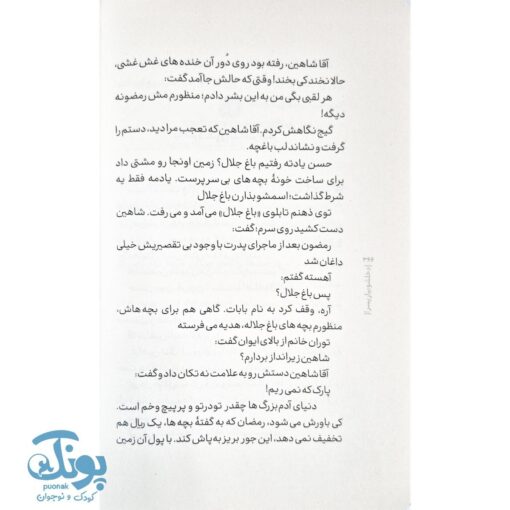 آقا شاهین، رفته بود روی دُور آن خنده های غش غشی،
حالا نخند کی بخند! وقتی که حالش جا آمد گفت:
هر لقبی بگی من به این بشر دادم؛ منظورم مش رمضونه
دیگه!
گیج نگاهش کردم. آقا شاهین که تعجب مرا دید، دستم را
گرفت و نشاند لب باغچه.
حسن یادته رفتیم باغ جلال؟ زمین اونجا رو مشتی داد
برای ساخت خونهٔ بچه های بی سرپرست. یادمه فقط یه
شرط گذاشت؛ اسمشو بذارن باغ جلال
توی ذهنم تابلوی «باغ جلال» می آمد و می رفت. شاهین
دست کشید روی سرم؛ گفت:
رمضون بعد از ماجرای پدرت با وجود بی تقصیریش خیلی
داغان شد
آهسته گفتم:
پس باغ جلال؟
آره، وقف کرد به نام بابات. گاهی هم برای بچه هاش،
منظورم بچه های باغ جلاله، هدیه می فرسته
توران خانم از بالای ایوان گفت:
شاهین زیرانداز بردارم؟
آقا شاهین دستش رو به علامت نه تکان داد و گفت:
پارک که نمی ریم!
دنیای آدم بزرگ ها چقدر تودرتو و پر پیچ و خم است.
کی باورش می شود، رمضان که به گفتهٔ بچه ها، یک ریال هم
تخفیف نمی دهد، این جور بریز به پاش کند. با پول آن زمین
پونک
puonak
کودک و نوجوان